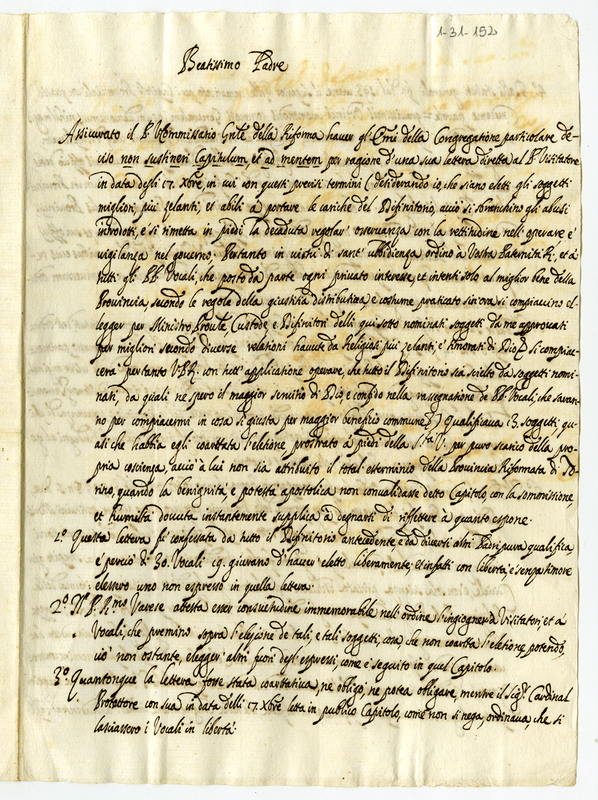 1-31-152
Beatissimo Padre
Assicurato il P. Commissario Gnle della Riforma haver gl'Emi della Congregatione particolare de-
ciso non sustineri Capitulum, et ad mentem per ragione d'una sua lettera diretta al P. Visitatore
in data delli 17. Xbre, in cui con questi precisi termini (desiderando io, che siano eletti gli soggetti
migliori, più zelanti, et abili à portare le cariche del Difinitorio, acciò si sbranchino gli abusi
introdoti, e si rimetta in piedi la decaduta regolar' osservanza con la rettitudine nell'operare e'
vigilanza nel governo. Pertanto in virtù di sant' ubbidienza ordino à Vostra Paternità R., et à
tutti gli PP. Vocali, che posto da parte ogni privato interesse, et intenti solo al miglior bene della
Provincia, secondo le regole della giustitia distributiva e costume praticato sin'ora si compiaccino el-
legger per Ministro Provle, Custode, e Difinitori delli qui sotto nominati soggetti da me approvati
per migliori secondo diverse relationi havute da Religiosi più zelanti, e' timorati di Dio. Si compiac-
cerà pertanto V.P.R. con tutt' applicatione operare, che tutto il Difinitorio sia scielto da soggetti nomi-
nati, da quali ne spero il maggior servitio di Dio, e confido nella rassegnatione de PP. Vocali, che saran-
no per compiacermi in cosa si giusta per maggior beneficio commune) Qualificava 13. soggetti, qu-
asi che habbia egli coarttata l'eletione, prostrato à piedi della Sta V. per puro scarico della pro-
pria cosienza, acciò à lui non sia attribuito il total esterminio della Provincia Riformata di To-
rino, quando la benignità, e potestà apostolica non convalidasse detto Capitolo, con la somonitione,
et humiltà dovuta instantemente supplica à degnarsi di riflettere à quanto espone.
1.o Questa lettera fù confessata da tutto il Difinitorio antecedente e da diversi altri Padri pura qualifica
e' perciò di 30. Vocali 29. giurano d'haver' eletto liberamente, et infatti con libertà, e senza timore
elessero uno non espresso in quella lettera.
2.o Il P. Rmo Varese attesta esser consuetudine immemorabile nell'ordine l'ingiogner à Visitatori, et à
Vocali, che premino sopra l'elezione de tali, e tali soggetti, cosa, che non coartta l'eletione, potendo,
ciò non ostante, elegger' altri fuori degl'espressi, come è seguito in quel Capitolo.
3.o Quantonque la lettera fosse stata coarttativa, ne obligò, ne potea obligare, mentre il Sigr. Cardinal
Protettore con sua in data delli 17. Xbre letta in publico Capitolo, come non si nega, ordinava, che si
lasciassero i Vocali in libertà.